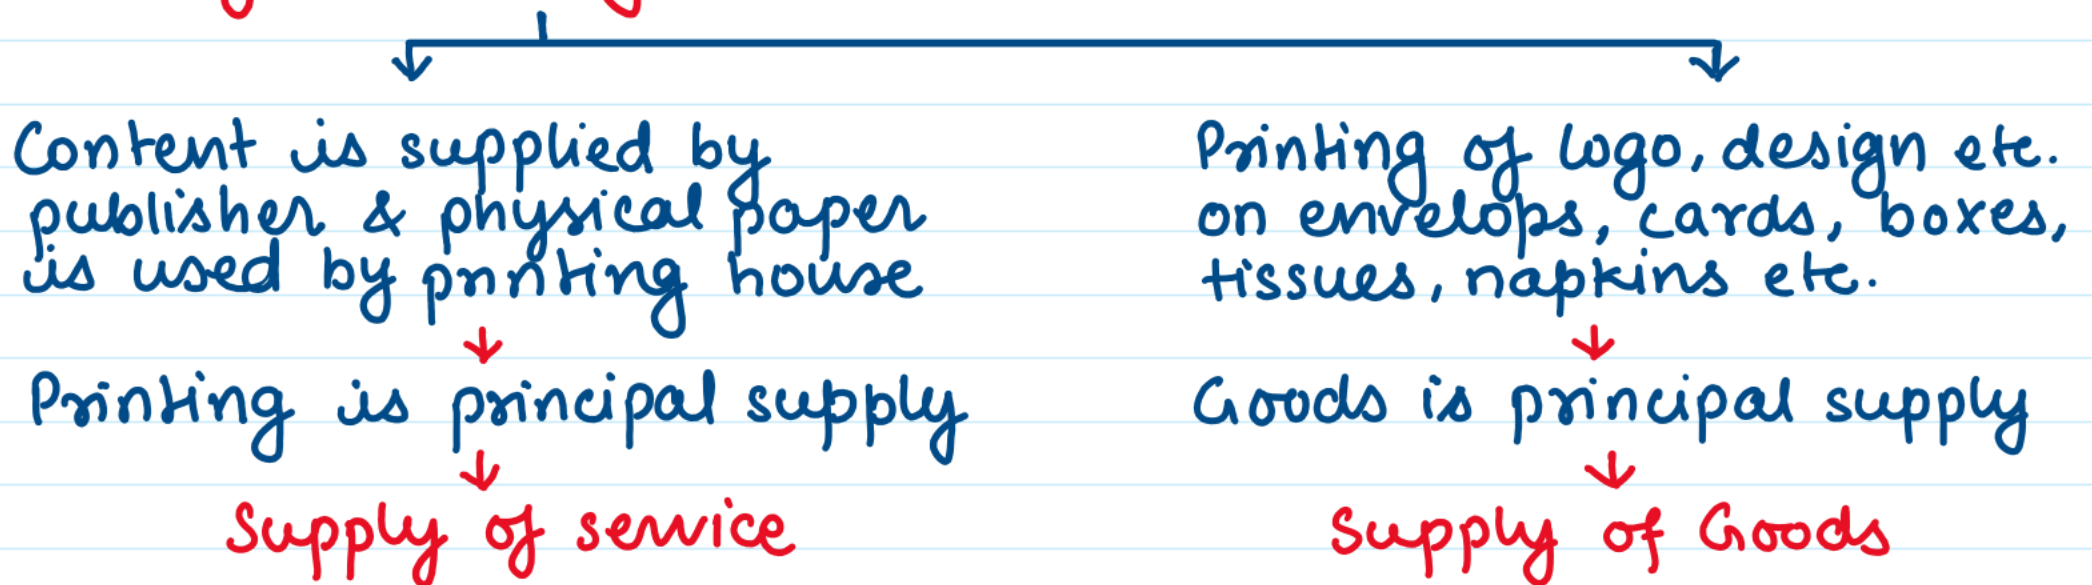 Content is supplied by
publisher & physical paper
is used by printing house
Printing is principal supply
Supply of service
Printing of logo, design etc.
on envelops, cards, boxes,
tissues, napkins etc.
Goods is principal supply
Supply of Goods